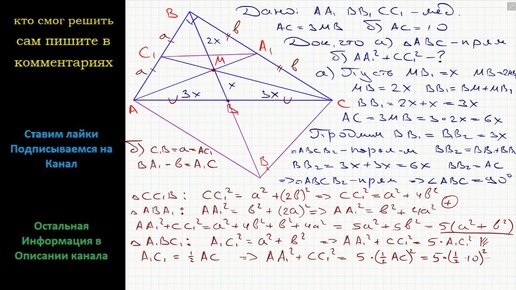 кто смог решить
сам пишите в
комментариях
Ставим лайки
Подписываемся на
Канал
Остальная
Информация в
Описании канала
B
a
2x
b
C₁
A₁
a
M
b
x
A
3x
B₁
3x
C
B₂
Дано: AA₁ BB₁ CC₁ - мед.
AC = 3MB б) AC = 10
Док, что а) △ABC - прям
б) AA₁² + CC₁² - ?
а) Пусть MB₁ = x
MB = 2x BB₁ = BM + MB₁
BB₁ = 2x + x = 3x
AC = 3MB = 3·2x = 6x
Продлим BB₁ = BB₂ = 3x
BB₂ = 3x + 3x = 6x BB₂ = AC
=> ABCB₂ - прям => ∠ABC = 90°
б) C₁B = a = AC₁
BA₁ = b = A₁C
△CC₁B: CC₁² = a² + (2b)² => CC₁² = a² + 4b²
△ABA₁: AA₁² = b² + (2a)² => AA₁² = b² + 4a² +
AA₁² + CC₁² = a² + 4b² + b² + 4a² = 5a² + 5b² = 5(a² + b²)
△A₁BC₁: A₁C₁² = a² + b² => AA₁² + CC₁² = 5·A₁C₁²
A₁C₁ = ½ AC => AA₁² + CC₁² = 5·(½ AC)² = 5·(½·10)²